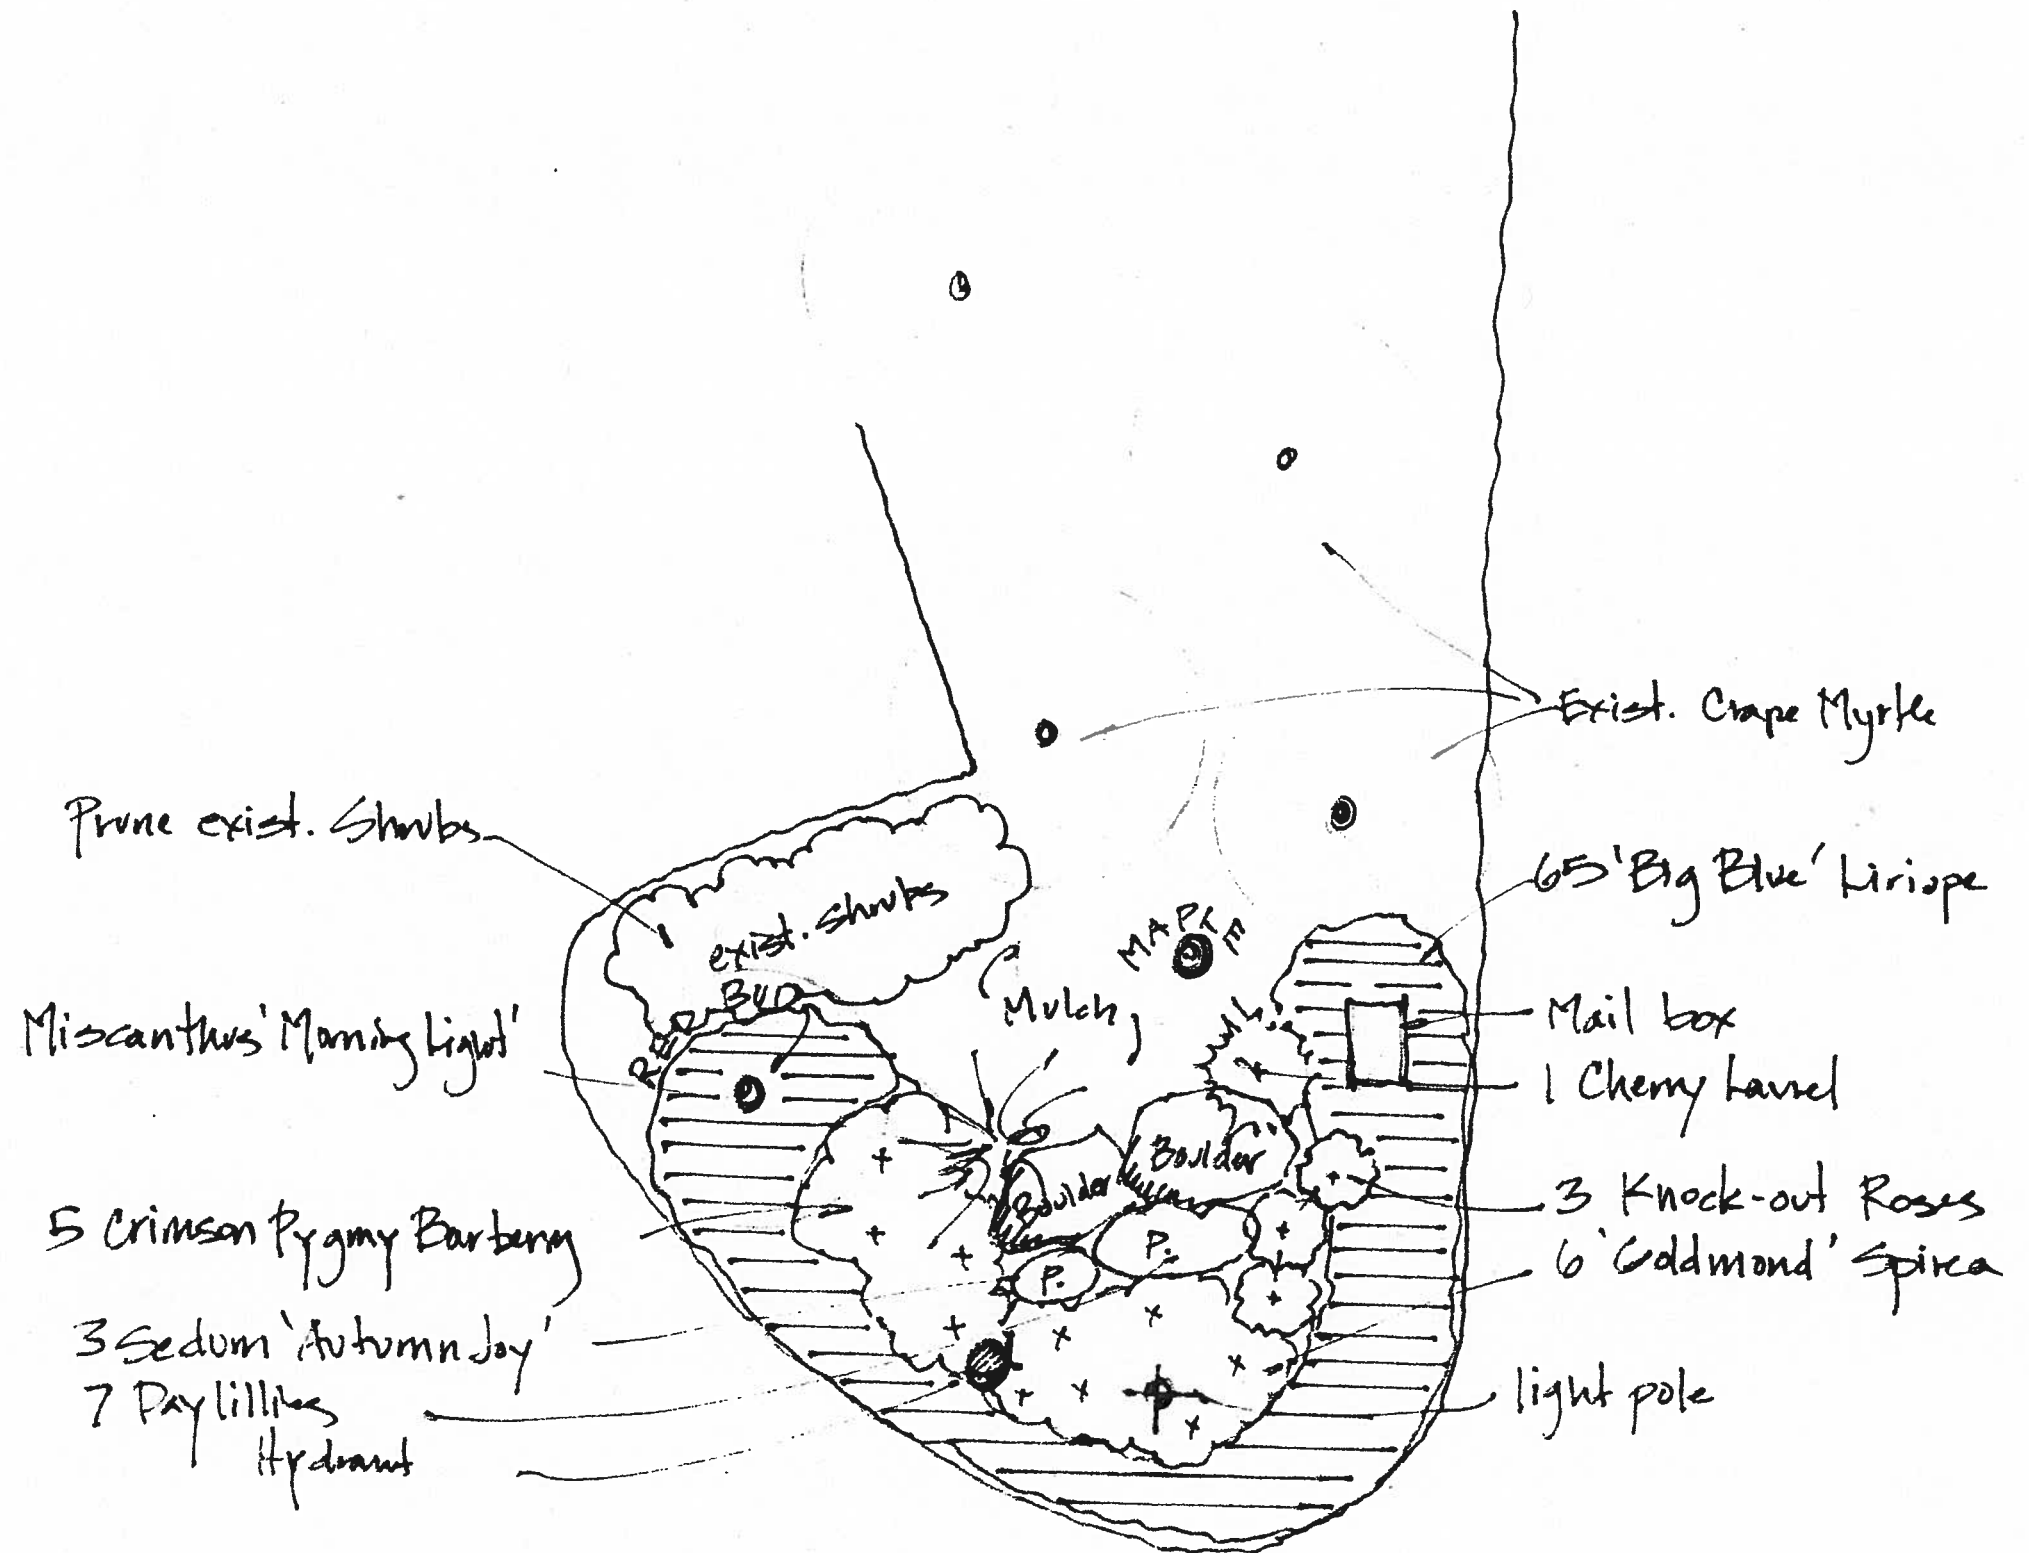 Exist. Crape Myrtle
Prune exist. Shrubs
65 'Big Blue' Liriope
exist. shrubs
MAPLE
RED BUD
Mulch
Miscanthus 'Morning Light'
Mail box
1 Cherry Laurel
Boulder
Boulder
3 Knock-out Roses
5 Crimson Pygmy Barberry
P.
P.
6 'Goldmond' Spirea
3 Sedum 'Autumn Joy'
7 Daylillies
light pole
Hydrant